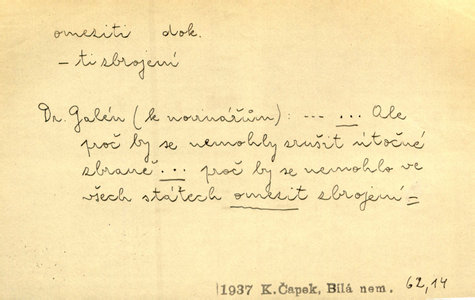 omeziti dok.
– ti zbrojení
Dr. Galén (k novinářům): --- ... Ale
proč by se nemohly zrušit útočné
zbraně ... proč by se nemohlo ve
všech státech omezit zbrojení =
1937 K.Čapek, Bílá nem. 62,14